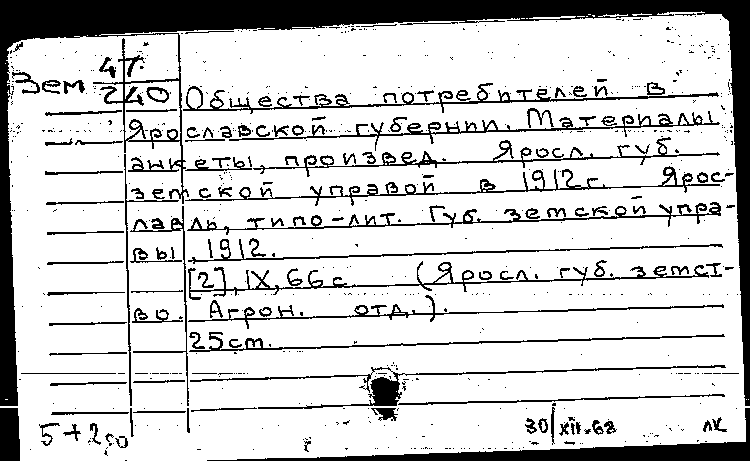 47.
Зем 240 Общества потребителей в
Ярославской губернии. Материалы
анкеты, произвед. Яросл. губ.
земской управой в 1912 г. Ярос-
лавль, типо-лит. Губ. земской упра-
вы, 1912.
[2], IX, 66 с. (Яросл. губ. земст-
во. Агрон. отд.).
25 cm.
5+2,50
30/XII-68 ЛК